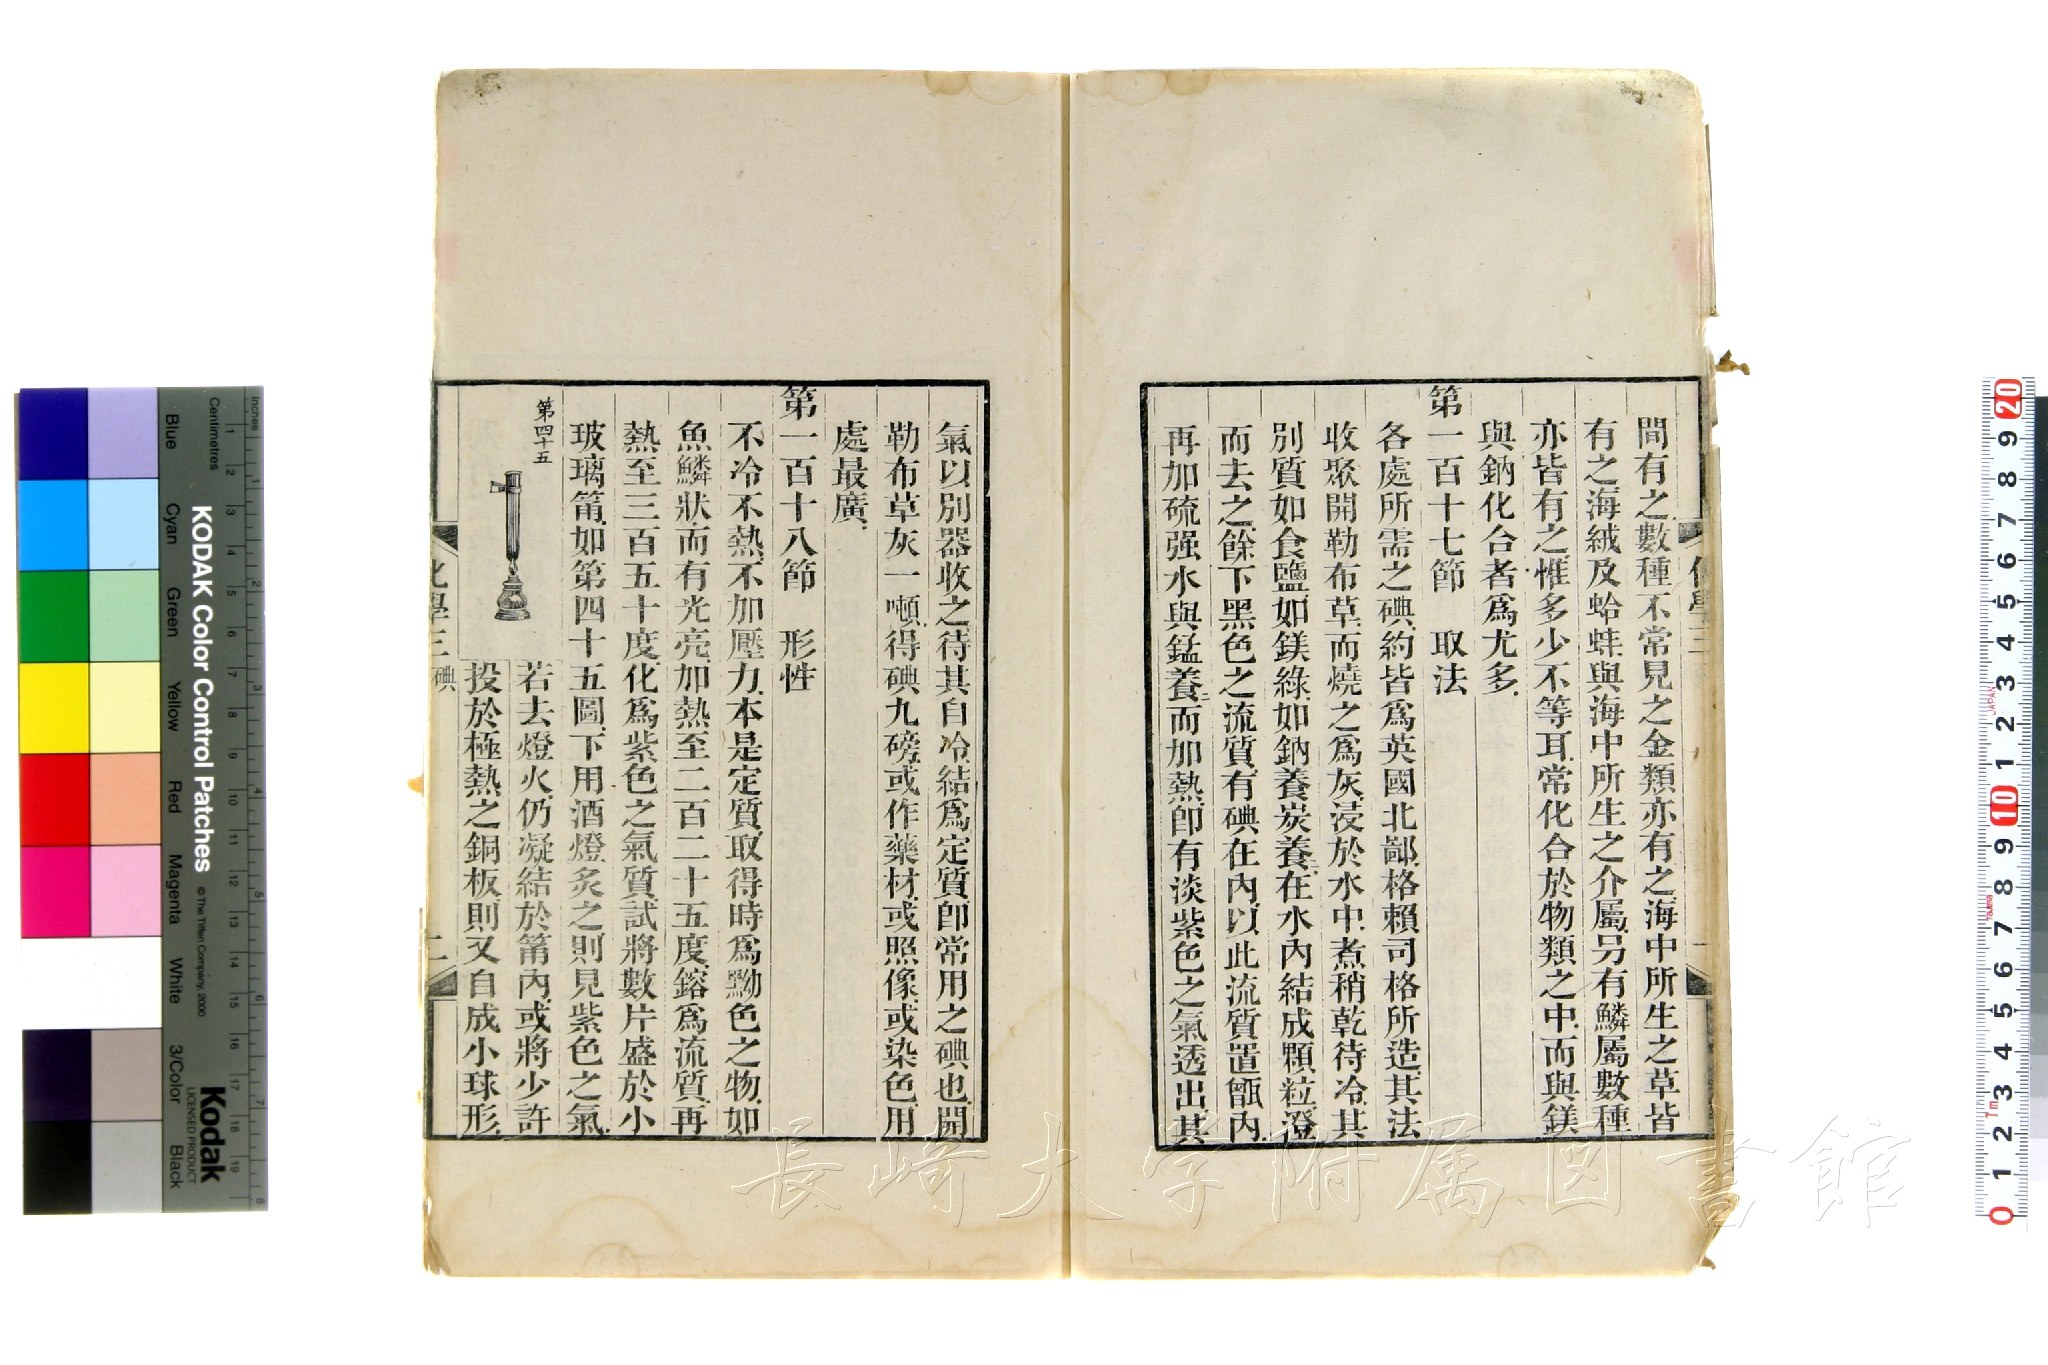 間有之數種不常見之金類亦有之海中所生之草皆
有之海絨及蛤蚌與海中所生之介屬另有鱗屬數種
亦皆有之惟多少不等耳常化合於物類之中而與鎂
與鈉化合者爲尤多
第一百十七節 取法
各處所需之碘約皆爲英國北鄙格賴司格所造其法
收聚開勒布草而燒之爲灰浸於水中煮稍乾待冷其
別質如食鹽如鎂綠如鈉養炭養二在水內結成顆粒澄
而去之餘下黑色之流質有碘在內以此流質置甑內
再加硫强水與錳養二而加熱卽有淡紫色之氣透出其
氣以別器收之待其自冷結爲定質卽常用之碘也開
勒布草灰一噸得碘九磅或作藥材或照像或染色用
處最廣
第一百十八節 形性
不冷不熱不加壓力本是定質取得時爲黝色之物如
魚鱗狀而有光亮加熱至二百二十五度鎔爲流質再
熱至三百五十度化爲紫色之氣質試將數片盛於小
玻璃筩如第四十五圖下用酒燈炙之則見紫色之氣
第四十五
若去燈火仍凝結於筩內或將少許
投於極熱之銅板則又自成小球形
化學三 碘 二
長崎大学附属図書館
KODAK Color Control Patches
© The Tiffen Company, 2000
Kodak
LICENSED PRODUCT
Inches
Centimetres
Blue
Cyan
Green
Yellow
Red
Magenta
White
3/Color
Black